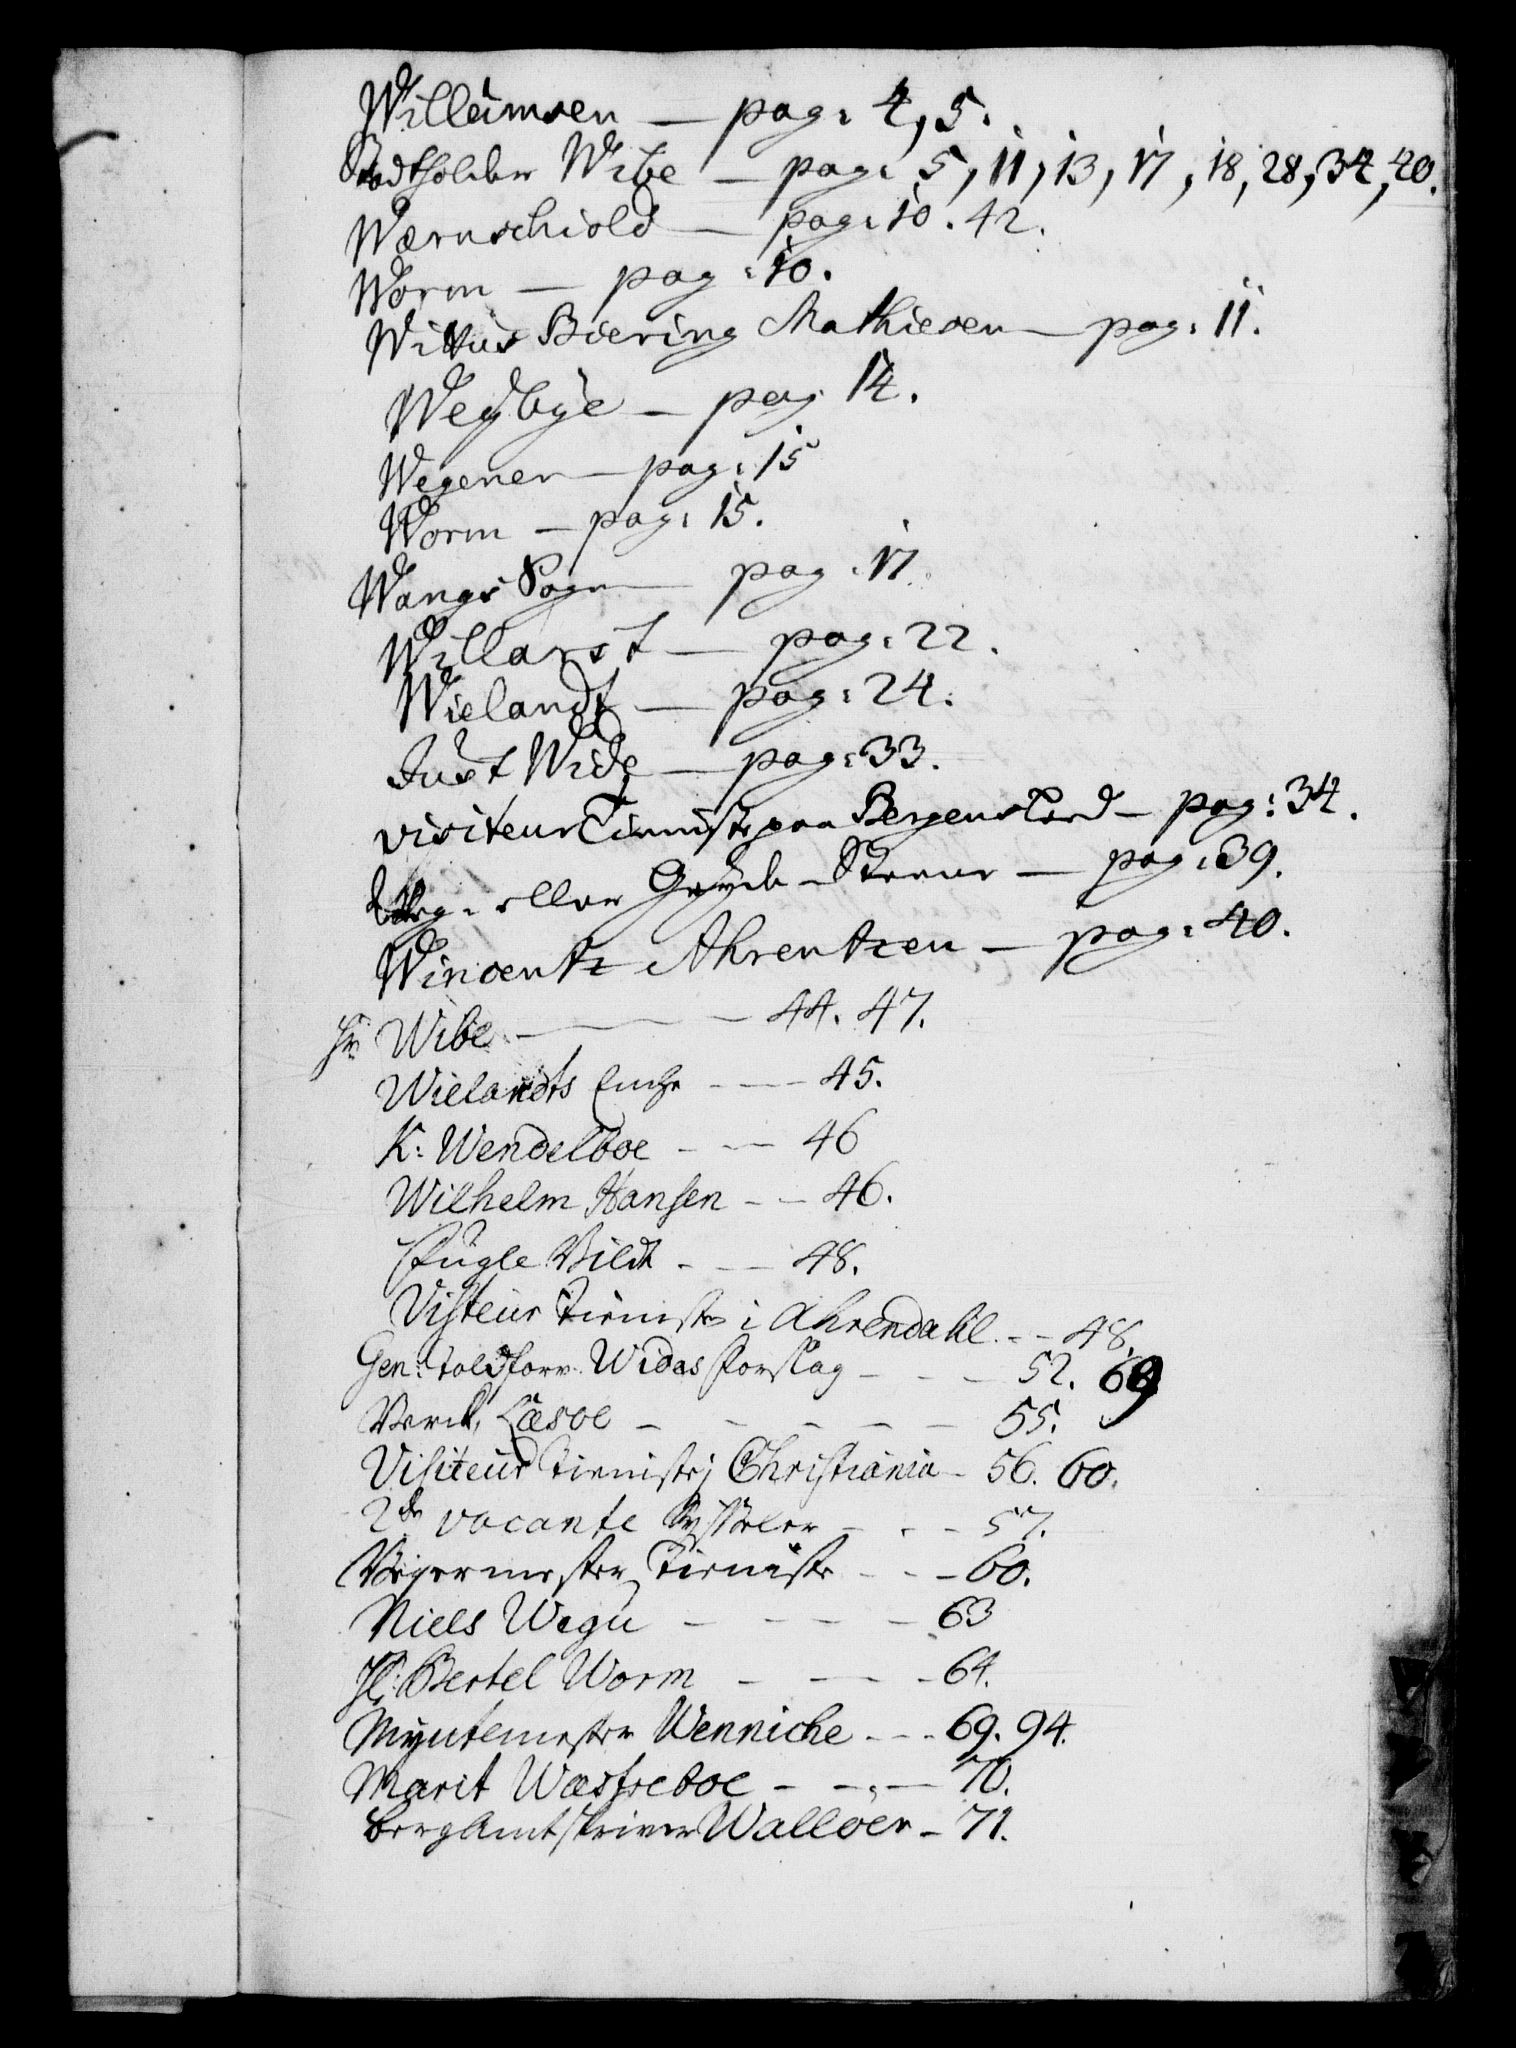 Willumsen — pag: 4, 5.
Stadtholder Wibe — pag: 5, 11, 13, 17, 18, 28, 34, 40.
Wærnschiold — pag: 10. 42.
Worm — pag: 10.
Wittus Biering Mathiesen — pag: 11.
Weybye — pag 14.
Wegener — pag: 15
Worm — pag: 15.
Wangs Sogn — pag: 17.
Willarst — pag: 22.
Wielandt — pag: 24.
Just Wide — pag: 33.
visiteur Tieniste paa Bergens Told — pag: 34.
eller — pag: 39.
Wincentz Ahrentzen — pag: 40.
Hr Wibe — — — 44. 47.
Wielandts Encke — — 45.
K: Wendelboe — — 46
Wilhelm Hansen — — 46.
Fugle Vildt — — 48.
Visiteur Tieniste i Ahrendahl — — 48.
Gen: toldforv. Widas forslag — — — 52. 69
Læsoe — — — — — 55.
Visiteur Tieniste i Christiania — 56. 60.
2de vacante Sysseler — — — 57.
Vejermester Tieniste — — — 60.
Niels Wegu — — — — 63
Hr: Bertel Worm — — — — 64.
Myntemester Wenniche — — — 69. 94.
Marit Wæstreboe — — — 70.
BergAmtskriver Walloer — 71.